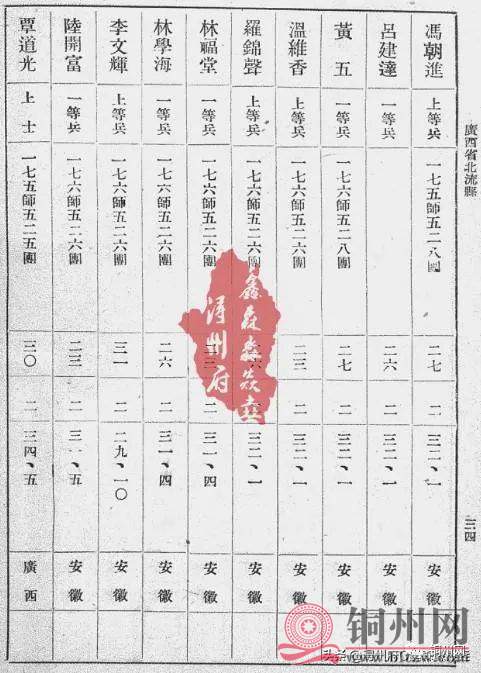 廣西省北流縣
馮朝進 上等兵 一七五師五二八團 二七 二 三二、一 安徽
呂建達 一等兵 二六 二 三二、一 安徽
黃五 一等兵 一七六師五二八團 二七 二 三二、一 安徽
溫維香 上等兵 一七六師五二六團 二三 二 三二、一 安徽
羅錦聲 上等兵 一七六師五二六團 二 三二、一 安徽
林福堂 一等兵 一七六師五二六團 二 三一、四 安徽
林學海 一等兵 一七六師五二六團 二六 二 三一、四 安徽
李文輝 上等兵 一七六師五二六團 三一 二 二九、一〇 安徽
陸開富 一等兵 一七六師五二六團 二三 二 三一、五 安徽
覃道光 上士 一七五師五二五團 三〇 二 三四、五 廣西
潯州府
铜州网